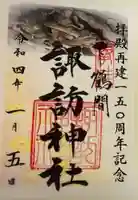 拝殿再建一五〇周年記念
下鶴間
諏訪神社
令和四年一月五日